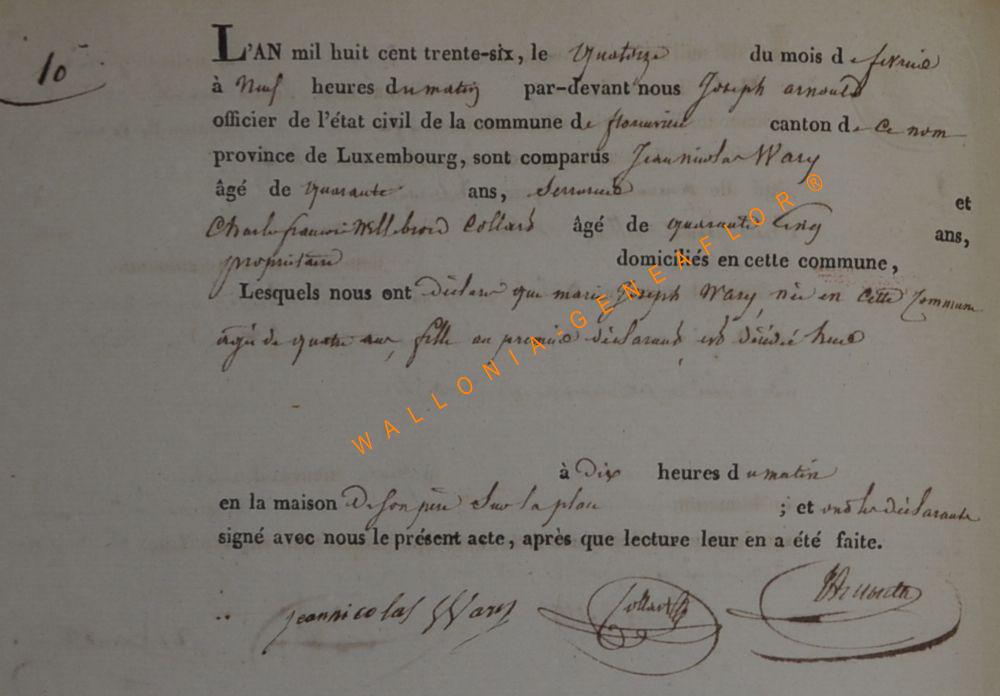 10
L'AN mil huit cent trente-six, le quatorze du mois de fevrier
à neuf heures du matin par-devant nous Joseph arnould
officier de l'état civil de la commune de florenville canton de ce nom
province de Luxembourg, sont comparus Jean nicolas Wary
âgé de quarante ans, serrurier et
Charle francois Willebrord Collard âgé de quarante cinq ans,
propriétaire domiciliés en cette commune,
Lesquels nous ont déclaré que marie Joseph Wary, née en cette Commune
agée de quatre ans, fille au premier déclarant est décédée hier
à dix heures du matin
en la maison de son père sur la place ; et ont les déclarants
signé avec nous le présent acte, après que lecture leur en a été faite.
jeannicolas Wary Collard
WALLONIA-GENEAFLOR ®